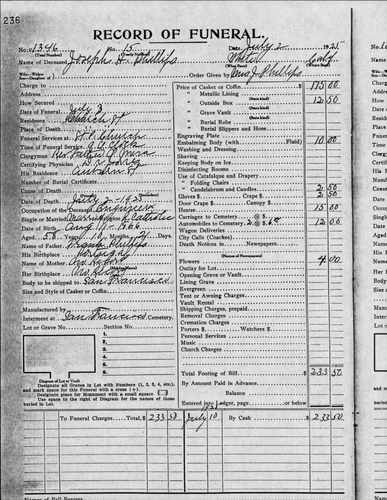 236
RECORD OF FUNERAL.
No. 1346 No. 15 Date July 2 1925
(Total Number) (Yearly Number)
Name of Deceased Joseph H. Phillips
Order Given by J. Phillips
Charge to
Address
How Secured
Date of Funeral July 3
Residence
Place of Death
Funeral Services at Church
Time of Service
Clergyman Rev.
Certifying Physician
His Residence St
Number of Burial Certificate
Cause of Death
Date of Death July 2 - 1925
Occupation of the Deceased
Single or Married Married Religion R. Catholic
Date of Birth Aug. 11 - 1866
Aged 58 Years 10 Months 21 Days
Name of Father Frank Phillips
His Birthplace Portugal
Name of Mother
Her Birthplace
Body to be shipped to San Francisco
Size and Style of Casket or Coffin
Manufactured by
Interment at San Francisco Cemetery.
Lot or Grave No. Section No.
1.
2.
3.
4.
5.
6.
Diagram of Lot or Vault
Designate all Graves in Lot with Numbers (1, 2, 3, 4, etc.), and mark space for this Funeral with a cross (+).
Designate place for Monument with a small square
Use space to right of Diagram for the names of those buried in Lot.
Price of Casket or Coffin $ 175 00
" Metallic Lining
" Outside Box 12 50
" Grave Vault
" Burial Robe
" Burial Slippers and Hose
Engraving Plate
Embalming Body (with Fluid) 10 00
Washing and Dressing
Shaving
Keeping Body on Ice
Disinfecting Rooms
Use of Catafalque and Drapery
" Folding Chairs
" Candelabrum and Candles 2 50
Gloves $ Crape $ 2 50
Door Crape $ Canopy $
Hearse 15 00
Carriages to Cemetery @ $
Automobiles to Cemetery 2 @ $ 6 00 12 00
Wagon Deliveries
City Calls (Coaches)
Death Notices in Newspapers
(Names of Newspapers)
Flowers 4 00
Outlay for Lot
Opening Grave or Vault
Lining Grave
Evergreen
Tent or Awning
Vault Rental
Shipping Charges, prepaid
Removal Charges
Cremation Charges
Porters $ Watchers $
Personal Services
Music
Church Charges
Total Footing of Bill $ 233 50
By Amount Paid in Advance
Balance
Entered into Ledger, page or below.
To Funeral Charges Total, $ 233 50 July 10 By Cash $ 233 50